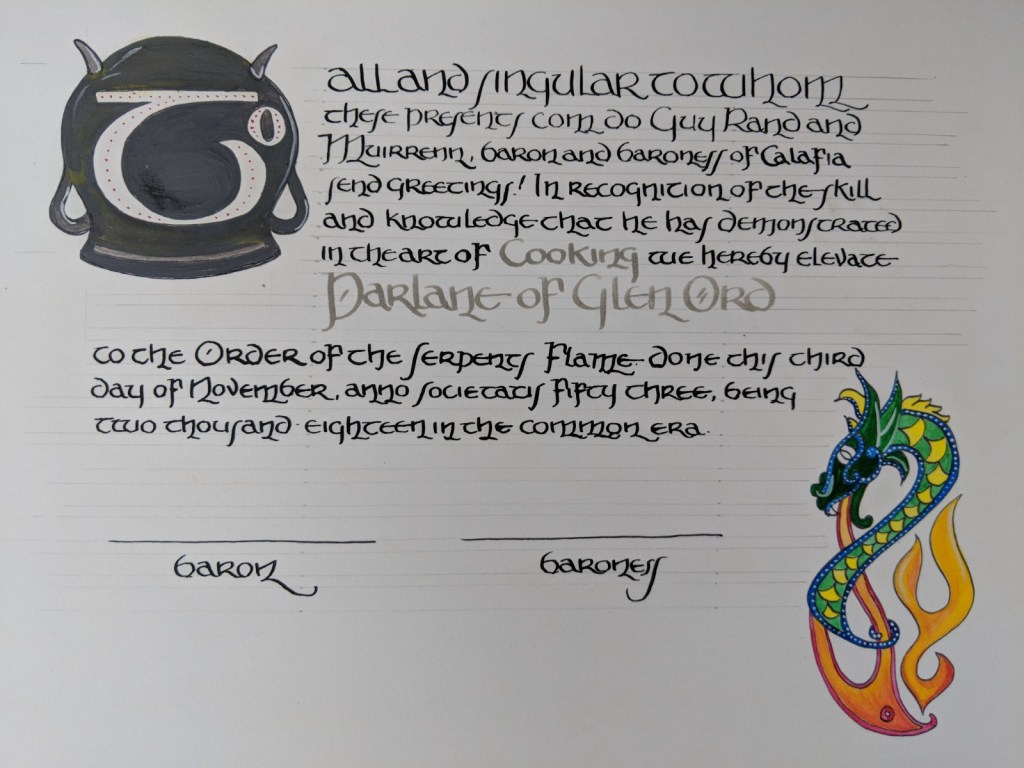 To all and singular to whom
these presents com do Guy Rand and
Muirrenn, baron and baroness of Calafia
send greetings! In recognition of the skill
and knowledge that he has demonstrated
in the art of Cooking we hereby elevate
Parlane of Glen Ord
to the Order of the Serpents Flame done this third
day of November, anno societatis fifty three, being
two thousand eighteen in the common era.
baron baroness